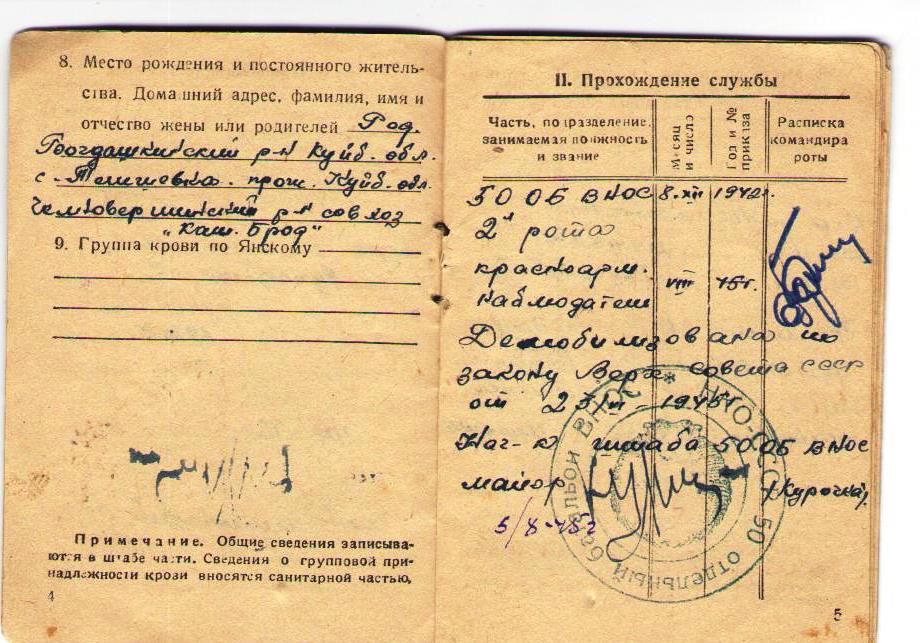 8. Место рождения и постоянного житель-
ства. Домашний адрес, фамилия, имя и
отчество жены или родителей Род.
р-н Куйб. обл.
с. прож. Куйб. обл.
р-н совхоз
"Каш. Брод"
9. Группа крови по Янскому
Примечание. Общие сведения записыва-
ются в штабе части. Сведения о групповой при-
надлежности крови вносятся санитарной частью.
4
II. Прохождение службы
Часть, подразделение, занимаемая должность и звание
Месяц и число
Год и № приказа
Расписка командира роты
50 ОБ ВНОС 8.XII 1942г.
2я рота
красноарм.
наблюдатель VIII 45г.
Демобилизована по
закону Верх. совета СССР
от 1945г
Нач-к штаба 50 ОБ ВНОС
майор /Курочкин/
5/8-45г
50 отдельный батальон ВНОС * НКО-СССР
5